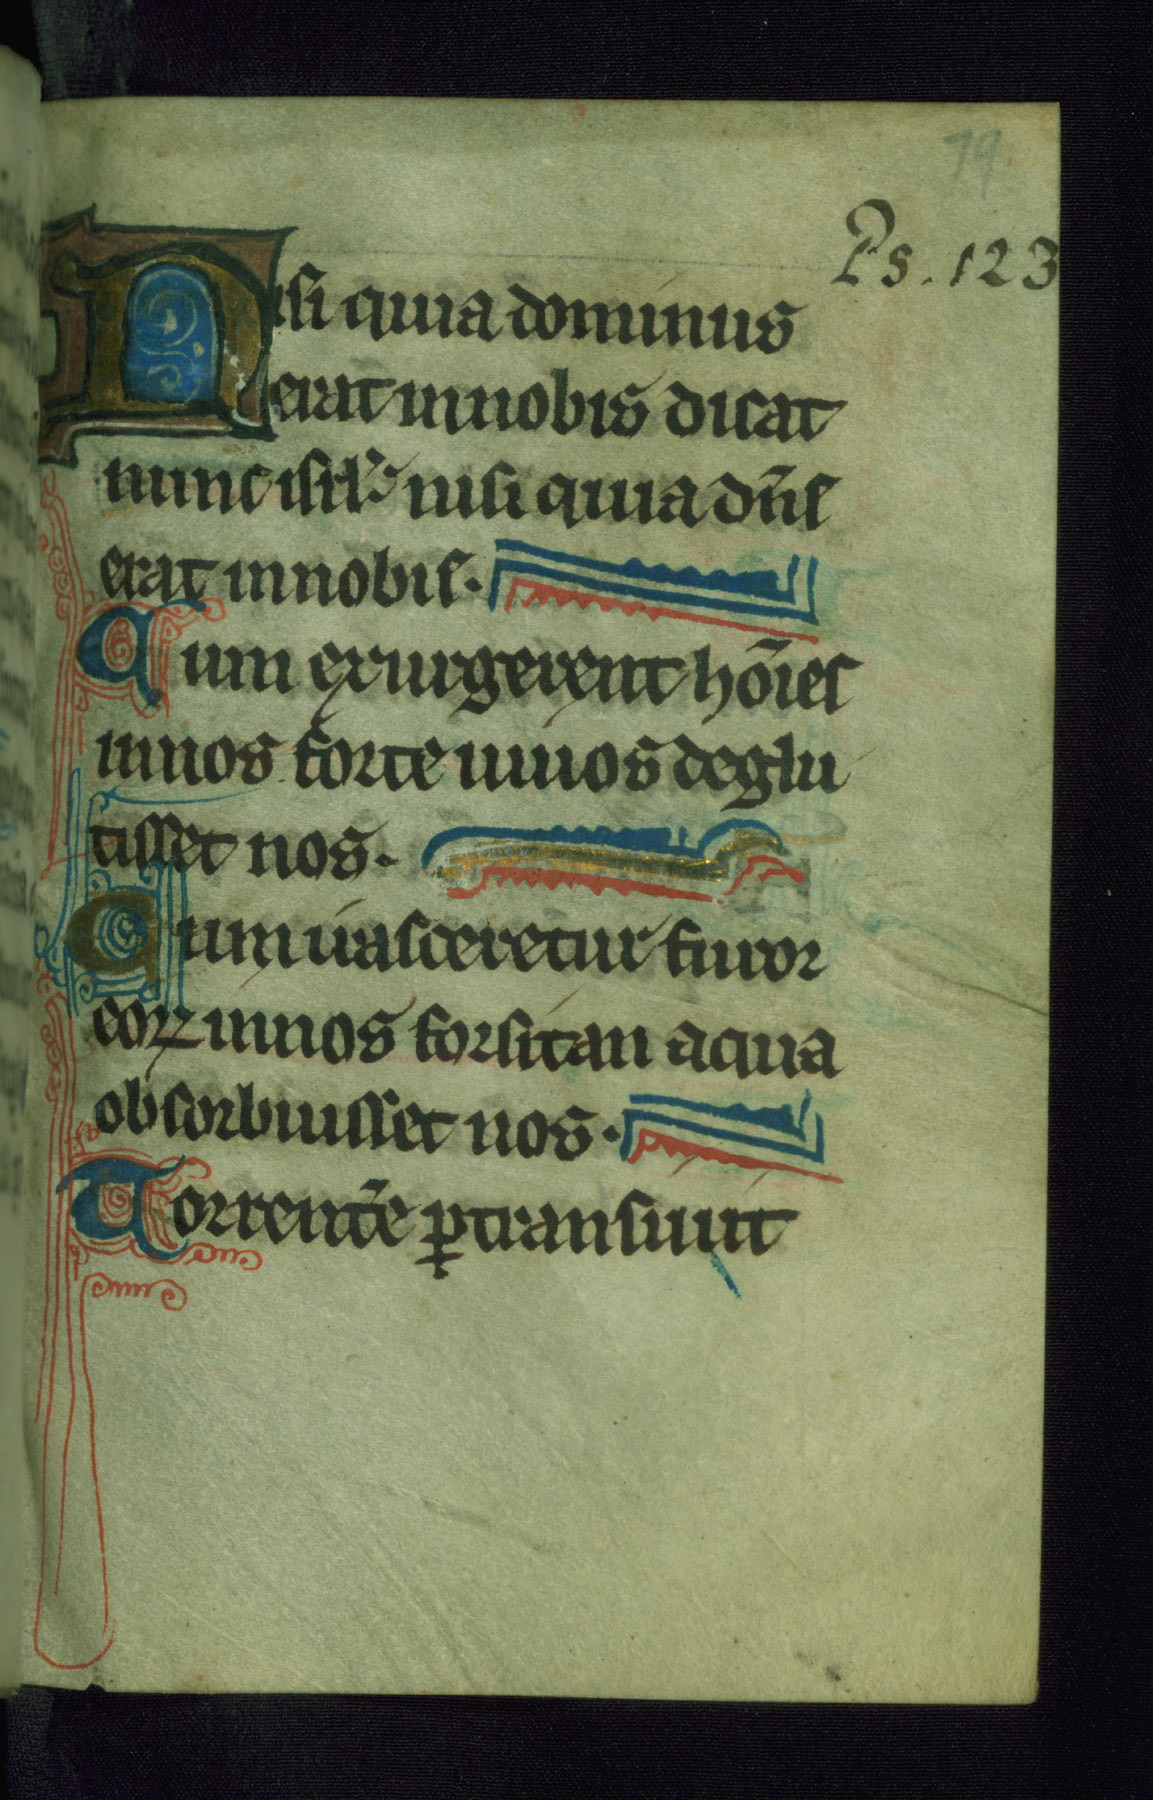 79
Ps. 123
Nisi quia dominus
erat in nobis dicat
nunc isrl' nisi quia dn̄s
erat in nobis.
Cum exurgerent ho̅ies
in nos forte uiuos deglu
tisset nos.
Cum irasceretur furor
eoꝝ in nos forsitan aqua
obsorbuisset nos.
Torrente̅ ꝑtransiuit